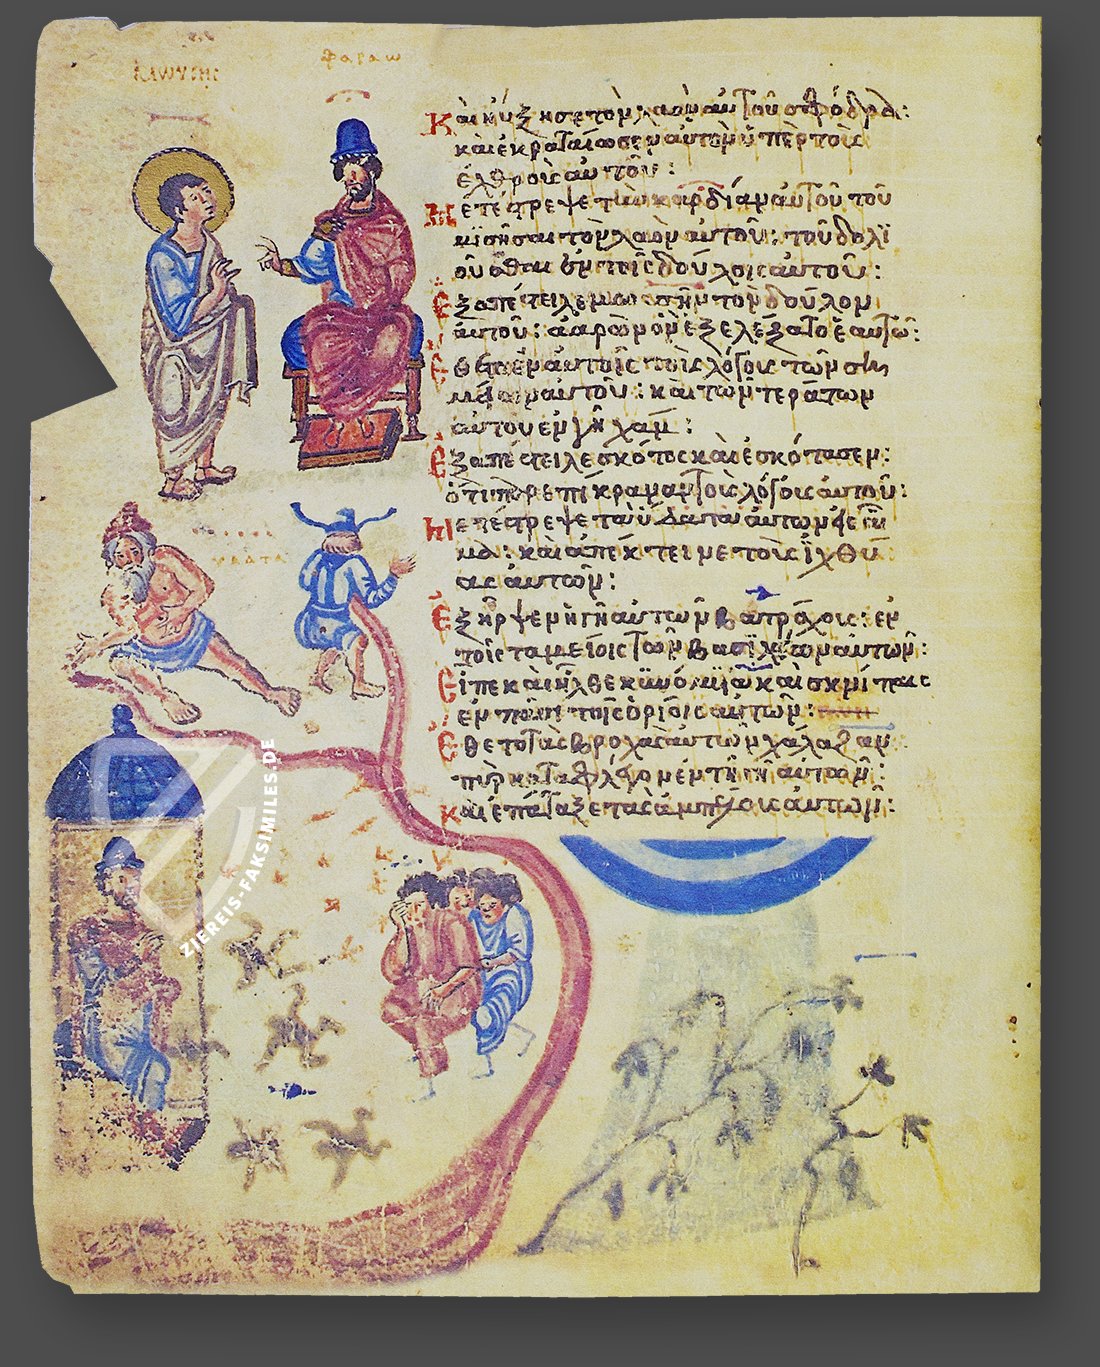 φαραω
Καὶ ηὔξησε τὸν λαὸν αὐτοῦ σφόδρα:
καὶ ἐκραταίωσεν αὐτὸν ὑπὲρ τοὺς
ἐχθροὺς αὐτοῦ:
Μετέστρεψε τὴν καρδίαν αὐτοῦ τοῦ
μισῆσαι τὸν λαὸν αὐτοῦ: τοῦ δολι
οῦσθαι ἐν τοῖς δούλοις αὐτοῦ:
Ἐξαπέστειλε μωσῆν τὸν δοῦλον
αὐτοῦ: ἀαρὼν ὃν ἐξελέξατο ἑαυτῶ:
Ἔθετο ἐν αὐτοῖς τοὺς λόγους τῶν ση
μείων αὐτοῦ: καὶ τῶν τεράτων
αὐτοῦ ἐν γῆ χάμ:
Ἐξαπέστειλε σκότος καὶ ἐσκότασεν:
ὅτι παρεπίκραναν τοὺς λόγους αὐτοῦ:
Μετέστρεψε τὰ ὕδατα αὐτῶν εἰς αἷ
μα: καὶ ἀπέκτεινε τοὺς ἰχθύ
ας αὐτῶν:
ὕδατα
Ἐξῆρψεν ἡ γῆ αὐτῶν βατράχους: ἐν
τοῖς ταμείοις τῶν βασιλέων αὐτῶν:
Εἶπε καὶ ἦλθε κυνόμυια καὶ σκνίπες
ἐν πᾶσι τοῖς ὁρίοις αὐτῶν:
Ἔθετο τὰς βροχὰς αὐτῶν χάλαζαν
πῦρ καταφλέγον ἐν τῆ γῆ αὐτῶν:
Καὶ ἐπάταξε τὰς ἀμπέλους αὐτῶν:
ZIEREIS-FAKSIMILES.DE